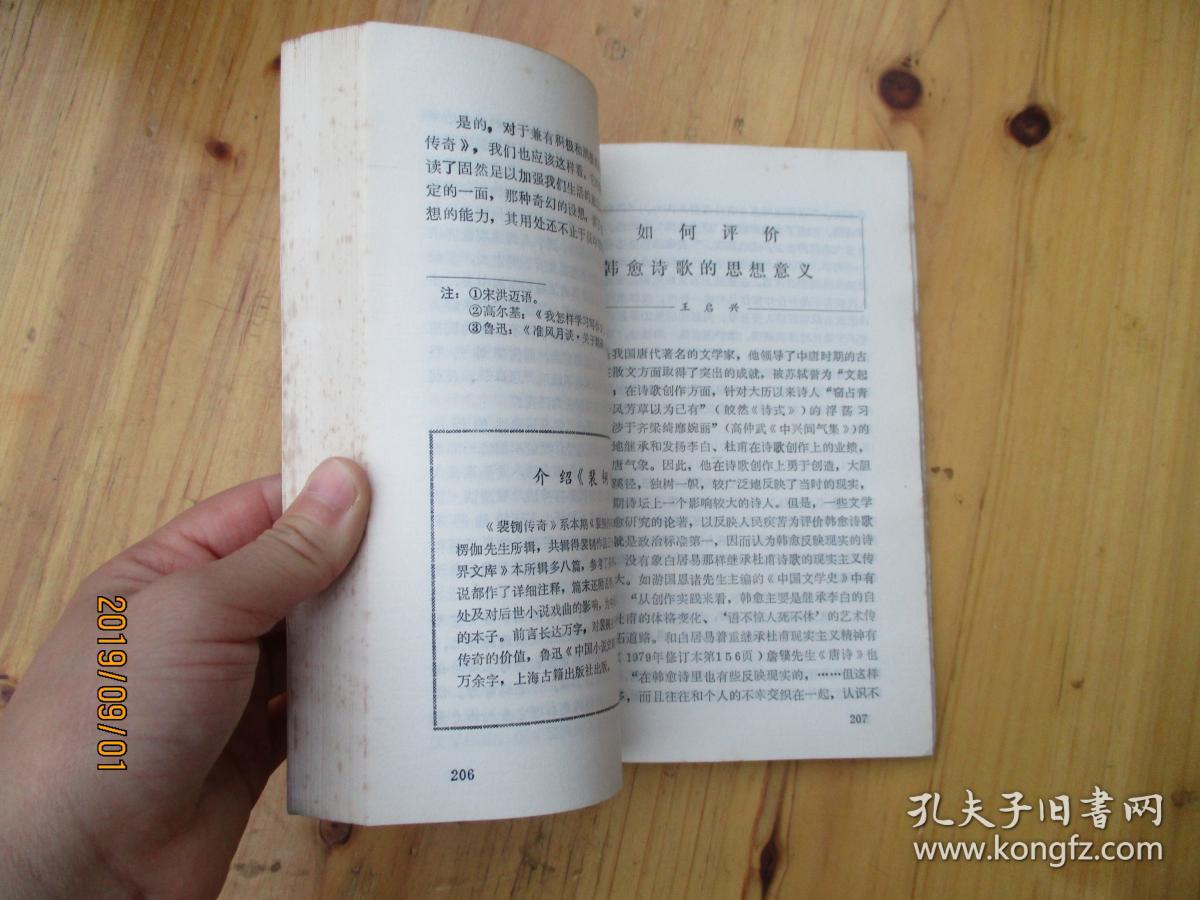 是的，对于兼有积极和
传奇》，我们也应该这样看，
读了固然足以加强我们生活的
定的一面，那种奇幻的设想，
想的能力，其用处还不止于
注：①宋洪迈语。
②高尔基：《我怎样学习写
③鲁迅：《准风月谈·关于
介绍《裴
《裴铏传奇》系本期《裴
楞伽先生所辑，共辑得裴铏作品三
界文库》本所辑多八篇，参考了
说都作了详细注释，篇末还附
处及对后世小说戏曲的影响，
的本子。前言长达万字，对裴铏
传奇的价值，鲁迅《中国小说史
万余字，上海古籍出版社出版。
206
如何评价
韩愈诗歌的思想意义
王启兴
我国唐代著名的文学家，他领导了中唐时期的古
散文方面取得了突出的成就，被苏轼誉为“文起
，在诗歌创作方面，针对大历以来诗人“窃占青
风芳草以为已有”（皎然《诗式》）的浮荡习
涉于齐梁绮靡婉丽”（高仲武《中兴间气集》）的
地继承和发扬李白、杜甫在诗歌创作上的业绩，
唐气象。因此，他在诗歌创作上勇于创造，大胆
蹊径，独树一帜，较广泛地反映了当时的现实，
期诗坛上一个影响较大的诗人。但是，一些文学
愈研究的论著，以反映人民疾苦为评价韩愈诗歌
就是政治标准第一，因而认为韩愈反映现实的诗
没有象白居易那样继承杜甫诗歌的现实主义传
大。如游国恩诸先生主编的《中国文学史》中有
“从创作实践来看，韩愈主要是继承李白的自
杜甫的体格变化、‘语不惊人死不休’的艺术传
石道路。和白居易着重继承杜甫现实主义精神有
1979年修订本第156页）詹锳先生《唐诗》也
“在韩愈诗里也有些反映现实的，……但这样
多，而且往往和个人的不幸交织在一起，认识不
207
2019/09/01
孔夫子旧书网
www.kongfz.com